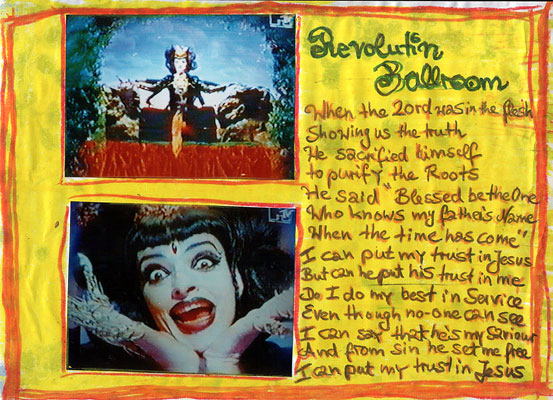 Revolutin
Ballroom
When the 20rd was in the flesh
Showing us the truth
He sacrified himself
to purify the Roots
He said "Blessed be the One
Who knows my father's Name
When the time has come"
I can put my trust in Jesus
But can he put his trust in me
Do I do my best in Service
Even though no-one can see
I can say that he's my Saviour
And from sin he set me free
I can put my trust in Jesus